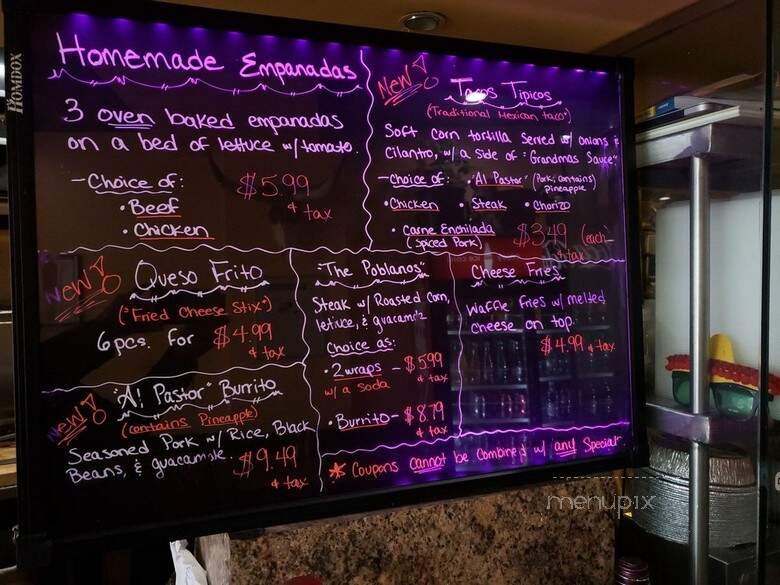 HOMDOX
Homemade Empanadas
3 oven baked empanadas
on a bed of lettuce w/ tomato.
- Choice of:
• Beef
• Chicken
$5.99
+ tax
New!
Tacos Tipicos
(Traditional Mexican taco")
Soft corn tortilla served w/ onions &
Cilantro, w/ a side of "Grandmas Sauce"
- Choice of: • "Al Pastor" (Pork, contains)
pineapple
• Chicken • Steak • Chorizo
• Carne Enchilada
(Spiced Pork)
$3.49 (each
+ tax
New!
Queso Frito
("Fried Cheese Stix")
6 pcs. for $4.99
+ tax
"The Poblanos"
Steak w/ Roasted Corn,
lettuce, & guacamole
Choice as:
• 2 wraps - $5.99
w/ a soda + tax
• Burrito - $8.79
+ tax
Cheese Fries
Waffle fries w/ melted
cheese on top.
$4.99 + tax
New!
"Al Pastor" Burrito
(contains Pineapple)
Seasoned Pork w/ Rice, Black
Beans, & guacamole.
$9.49
+ tax
* Coupons cannot be combined w/ any Special
menupix